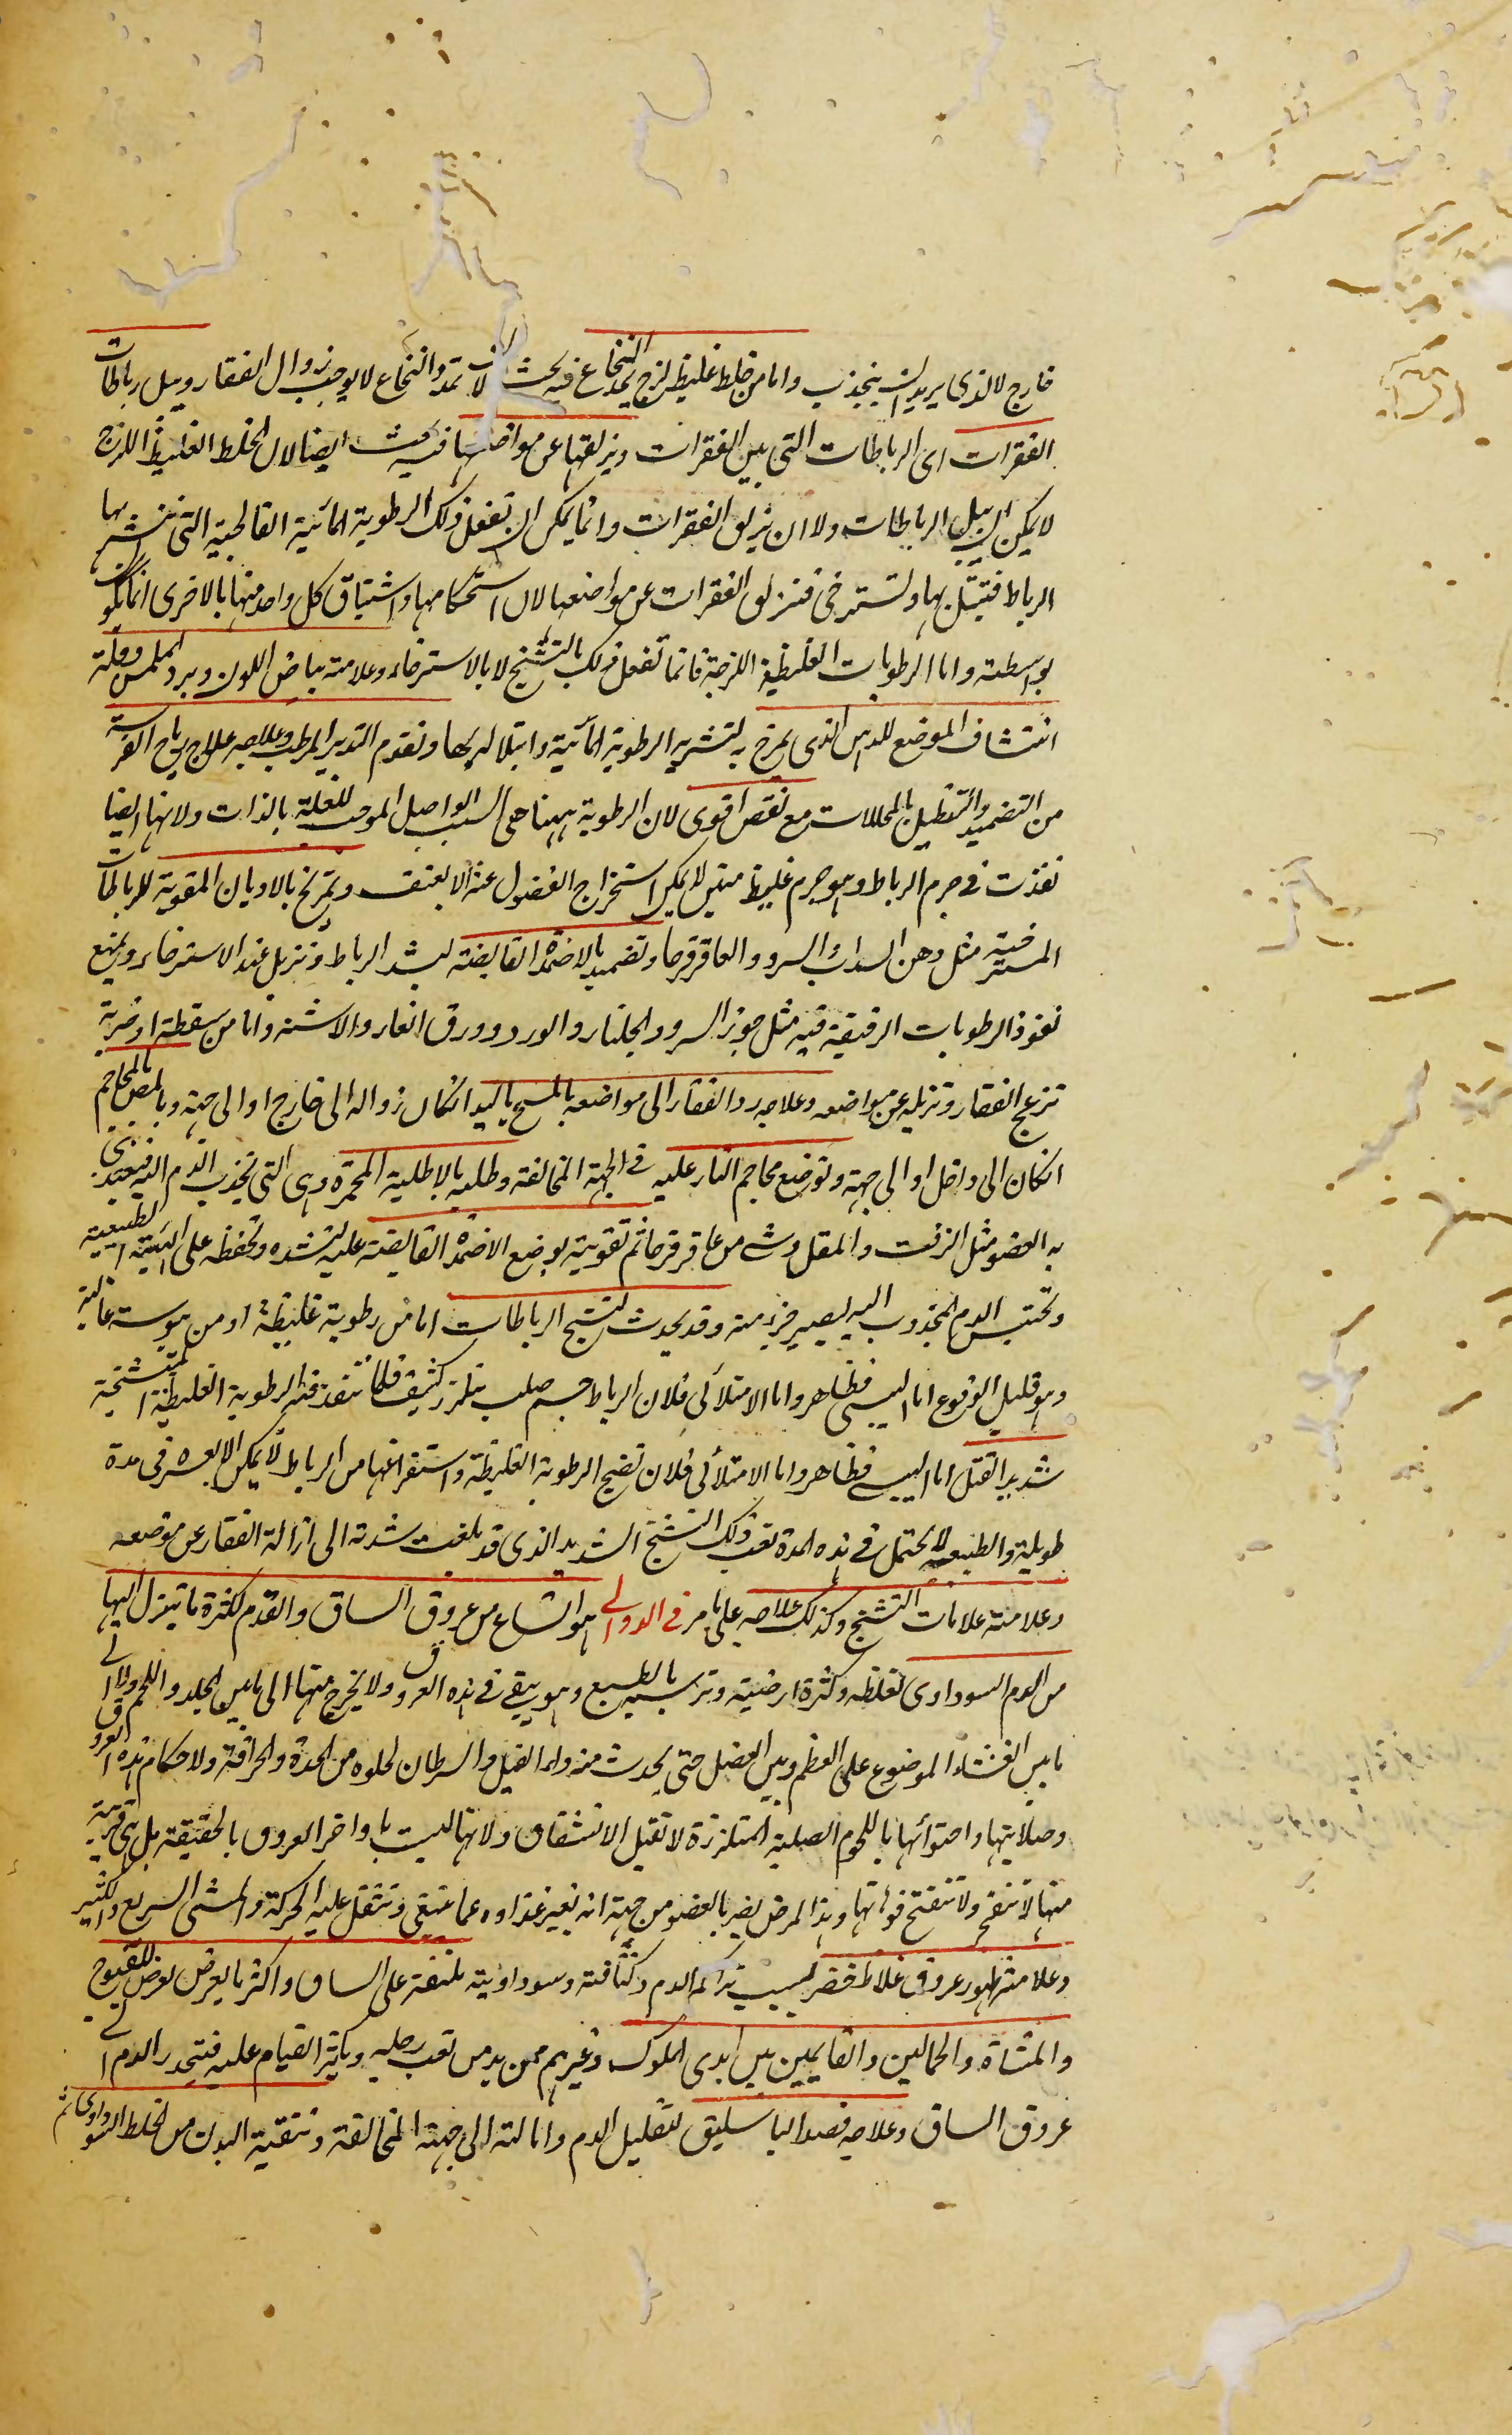 خارج لا لذى يريد ان ينجذب واما من خلط غليظ لزج يمدد النخاع فيه بحث لان تمدد النخاع لا يوجب زوال الفقار ويبل رباطات
الفقرات اى الرباطات التى بين الفقرات ويزلقها عن مواضعها فيه بحث ايضا لان الخلط الغليظ اللزج
لا يمكن ان يبل الرباطات ولا ان يزلق الفقرات وانما يمكن ان تفعل ذلك الرطوبة المائية الفالجية التى يتشربها
الرباط فتبتل بها وتسترخى فتنزلق الفقرات عن مواضعها لان استحكامها واشتياق كل واحد منها بالاخرى انما يكون
بواسطته واما الرطوبات الغليظة اللزجة فانما تفعل ذلك بالتشنج لا بالاسترخاء وعلامته بياض اللون وبرد الملمس وقلة
انتشاف الموضع للدهن الذى يمرخ به لتشربه الرطوبة المائية وابتلاله بها وتقدم التدبير المرطب وعلاجه علاج رياح الافرسة
من التضميد والتنطيل بالمحللات مع نفض اقوى لان الرطوبة ههنا هى السبب الواصل الموجب للعلة بالذات ولانها ايضا
نفذت فى جرم الرباط وهو جرم غليظ متين لا يمكن استخراج الفضول عنه الا بعنف وتمريخ بالادهان المقوية للرباطات
المسترخية مثل دهن السداب والسرو والعاقرقرحا وتضميد بالاضمدة القابضة ليشد الرباط وتزيل عنه الاسترخاء ويمنع
نفوذ الرطوبات الرقيقة فيه مثل جوز السرو والجلنار والورد وورق الغار والاشنه واما من سقطة او ضربة
تزعج الفقار وتزيله عن مواضعه وعلاجه رد الفقار الى مواضعه بالمسح باليد انكان زواله الى خارج او الى جهة وبالمص بالمحاجم
انكان الى داخل او الى جهة وتوضع محاجم النار عليه فى الجهة المخالفة وطليه بالاطلية المحمرة وهى التى تجذب الدم اليه فيعيد
به العضو مثل الزفت والمقل وشى من عاقرقرحا ثم تقويته بوضع الاضمدة القابضة عليه لتشده وتحفظه على الهيئة الطبيعية
وتحتبس الدم المجذوب اليه ليصير جزء منه وقد يحدث لتشنج الرباطات اما من رطوبة غليظة او من يبوسة غالبة
وهو قليل الوقوع اما اليبسى فظاهر واما الامتلائى فلان الرباط جسم صلب متلزز كثيف فلما تنفذ فيه الرطوبة الغليظة المتشنجة
شديد القتل اما اليبسى فظاهر واما الامتلائى فلان نضج الرطوبة الغليظة واستفراغها من الرباط لا يمكن الا بعسر فى مدة
طويلة والطبيعة لا تحتمل فى هذه المدة تعب ذلك التشنج الشديد الذى قد بلغت شدته الى ازالة الفقار عن موضعه
وعلامته علامات التشنج وكذلك علاجه على ما مر فى الدوالى هو اتساع من عروق الساق والقدم لكثرة ما ينزل اليها
من الدم السوداوى لغلظه وكثرة ارضيته وترسبه بالطبع وهو يبقى فى هذه العروق ولا يخرج منها الى ما بين الجلد واللحم ولا الى
ما بين الغشاء الموضوع على العظم وبين العضل حتى يحدث منه داء الفيل والسرطان لخلوه من الحدة والحرافة ولاحكام هذه العروق
وصلابتها واحتوائها باللحوم الصلبة المتلززة لا تقبل الانشقاق ولانها ليست باواخر العروق بالحقيقة بل هى قريبة
منها لا تنفتح ولا تنفتح فوهاتها وهذا المرض يضر بالعضو من جهة انه يغير غذاوه عما ينبغى وتثقل عليه الحركة والمشى السريع والكثير
وعلامته ظهور عروق غلاظ خضر لسبب تراكم الدم وكثافته وسوداويته ملتفة على الساق واكثر ما يعرض يعرض للفيوج
والمشاة والحمالين والقايمين بين ايدى الملوك وغيرهم ممن يدمن تعب رجليه ويكثر القيام عليه فينحدر الدم الى
عروق الساق وعلاجه فصد الباسليق لتقليل الدم وامالته الى جهة المخالفة وتنقية البدن من الخلط السوداوى ثم